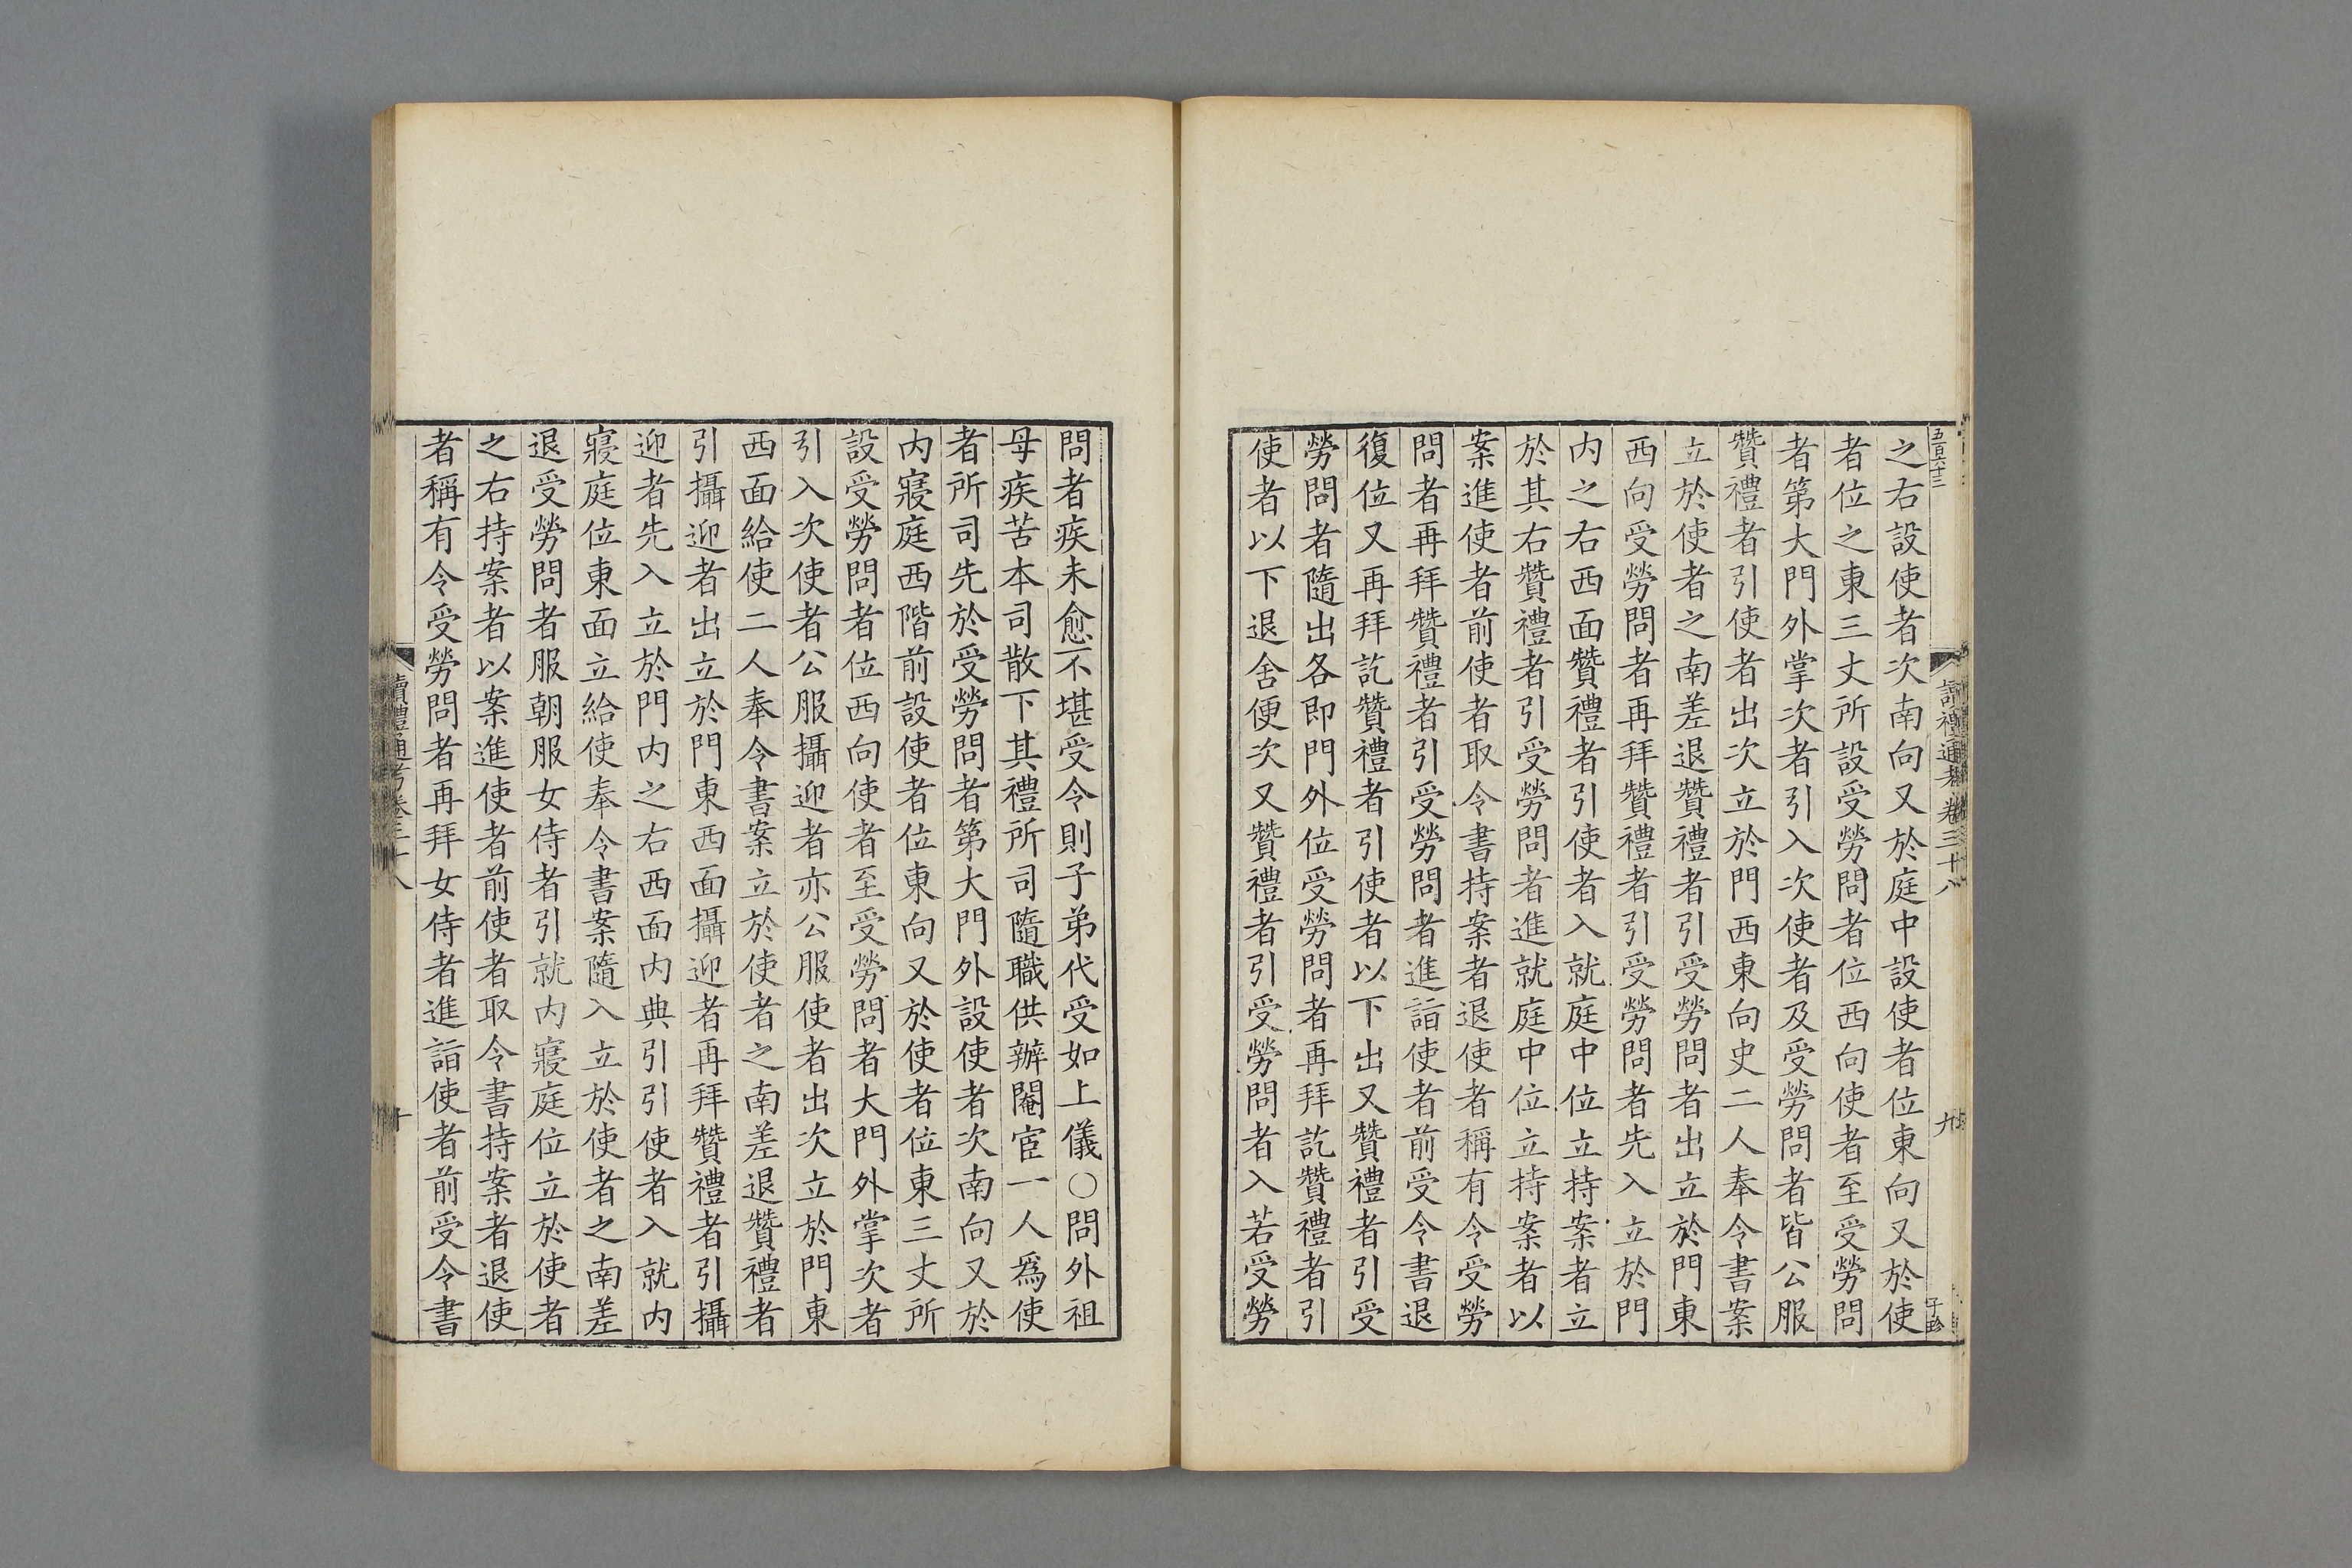 五百六十三
讀禮通考卷三十八
九
之右設使者次南向又於庭中設使者位東向又於使
者位之東三丈所設受勞問者位西向使者至受勞問
者第大門外掌次者引入次使者及受勞問者皆公服
贊禮者引使者出次立於門西東向史二人奉令書案
立於使者之南差退贊禮者引受勞問者出立於門東
西向受勞問者再拜贊禮者引受勞問者先入立於門
内之右西面贊禮者引使者入就庭中位立持案者立
於其右贊禮者引受勞問者進就庭中位立持案者以
案進使者前使者取令書持案者退使者稱有令受勞
問者再拜贊禮者引受勞問者進詣使者前受令書退
復位又再拜訖贊禮者引使者以下出又贊禮者引受
勞問者隨出各即門外位受勞問者再拜訖贊禮者引
使者以下退舍便次又贊禮者引受勞問者入若受勞
問者疾未愈不堪受令則子弟代受如上儀○問外祖
母疾苦本司散下其禮所司隨職供辦閹宦一人爲使
者所司先於受勞問者第大門外設使者次南向又於
内寢庭西階前設使者位東向又於使者位東三丈所
設受勞問者位西向使者至受勞問者大門外掌次者
引入次使者公服攝迎者亦公服使者出次立於門東
西面給使二人奉令書案立於使者之南差退贊禮者
引攝迎者出立於門東西面攝迎者再拜贊禮者引攝
迎者先入立於門内之右西面内典引引使者入就内
寢庭位東面立給使奉令書案隨入立於使者之南差
退受勞問者服朝服女侍者引就内寢庭位立於使者
之右持案者以案進使者前使者取令書持案者退使
者稱有令受勞問者再拜女侍者進詣使者前受令書
讀禮通考卷三十八
十